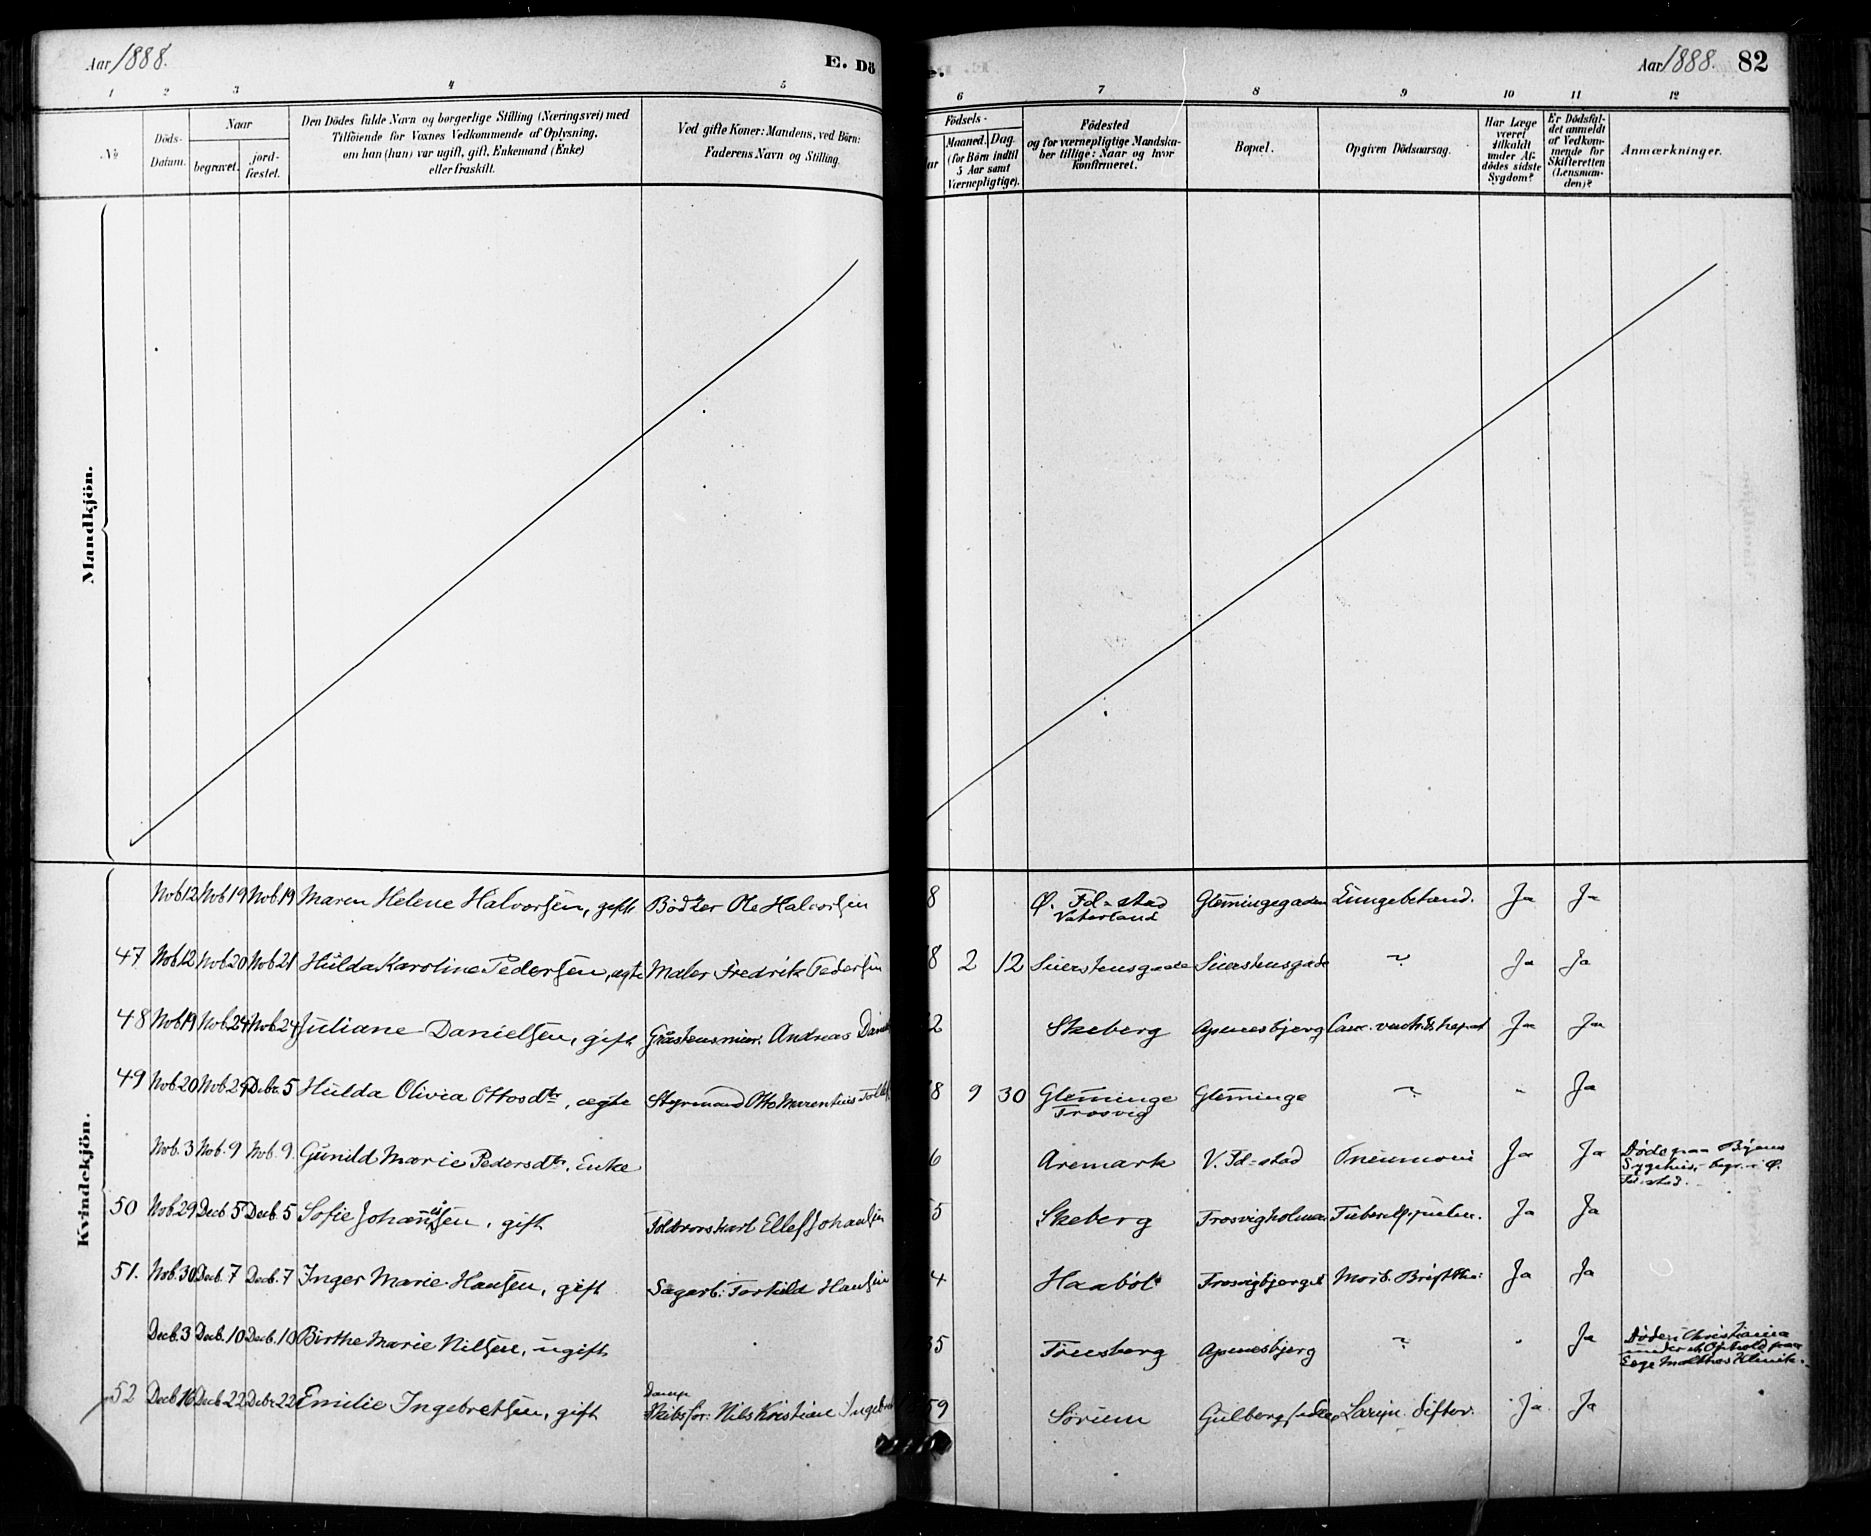 Aar 1888. E. Dö
e. Aar 1888. 82
1 2 3 4 5 6 7 8 9 10 11 12
No
Döds-
Datum.
Naar
begravet.
jord-
fæstet.
Den Dödes fulde Navn og borgerlige Stilling (Næringsvei) med
Tilföiende for Voxnes Vedkommende af Oplysning,
om han (hun) var ugift, gift, Enkemand (Enke)
eller fraskilt.
Ved gifte Koner: Mandens, ved Börn:
Faderens Navn og Stilling.
Födsels-
ar
Maaned. Dag.
(for Börn indtil
5 Aar samt
Værnepligtige).
Födested
og for værnepligtige Mandska-
ber tillige: Naar og hvor
konfirmeret.
Bopæl.
Opgiven Dödsaarsag.
Har Læge
været
tilkaldt
under Af-
dödes sidste
Sygdom?
Er Dödsfal-
det anmeldt
af Vedkom-
mende for
Skifteretten
(Lensman-
den)?
Anmærkninger.
Mandkjön.
Kvindekjön.
Nob 12 Nob 19 Nob 19 Maren Helene Halvorsen, gift Bødker Ole Halvorsen 8 Ø. Fd-stad Glemmingegaden Lungebetænd. Ja Ja
Vaterland
47 Nob 12 Nob 20 Nob 21 Hulda Karoline Pedersen, ægte Maler Fredrik Pedersen 8 2 12 Ja Ja
48 Nob 19 Nob 24 Nob 24 Juliane Danielsen, gift Andreas 2 Skeberg Apenesbjerg Ja Ja
49 Nob 20 Nob 24 Debr 5 Hulda Olivia Ottosdtr, ægte Styrmand Otto Marentius 8 9 30 Glemminge Glemminge " Ja
Trosvig
Nob. 3 Nob. 9 Nob. 9. Gunild Marie Pedersdtr. Enke 6 Aremark V. Fd-stad Pneumoni Ja Ja Døde paa Byens
Sygehus, begr. i Ø.
Fd-stad.
50 Nob. 29 Decb 5 Decb. 5 Sofie Johannesen, gift Ellef Johansen 5 Skeberg Trosvigholmen Ja Ja
51. Nob. 30 Decb. 7 Decb. 7 Inger Marie Hansen, gift Sagarb: Torkild Hansen 4 Haabøl Trosvigbjerget Morb. Brightii Ja Ja
Decb. 3 Decb. 10 Decb. 10 Birthe Marie Nilsen, ugift 35 Tunsberg Apenesbjerg " Ja Døde i Christiania
under et Ophold paa
Malthes Klinik.
52 Decb 16 Decb 22 Debr 22 Emilie Ingebretsen, gift Damp
Skibsfør: Nils Kristian Ingebret 59 Sørum Ja Ja